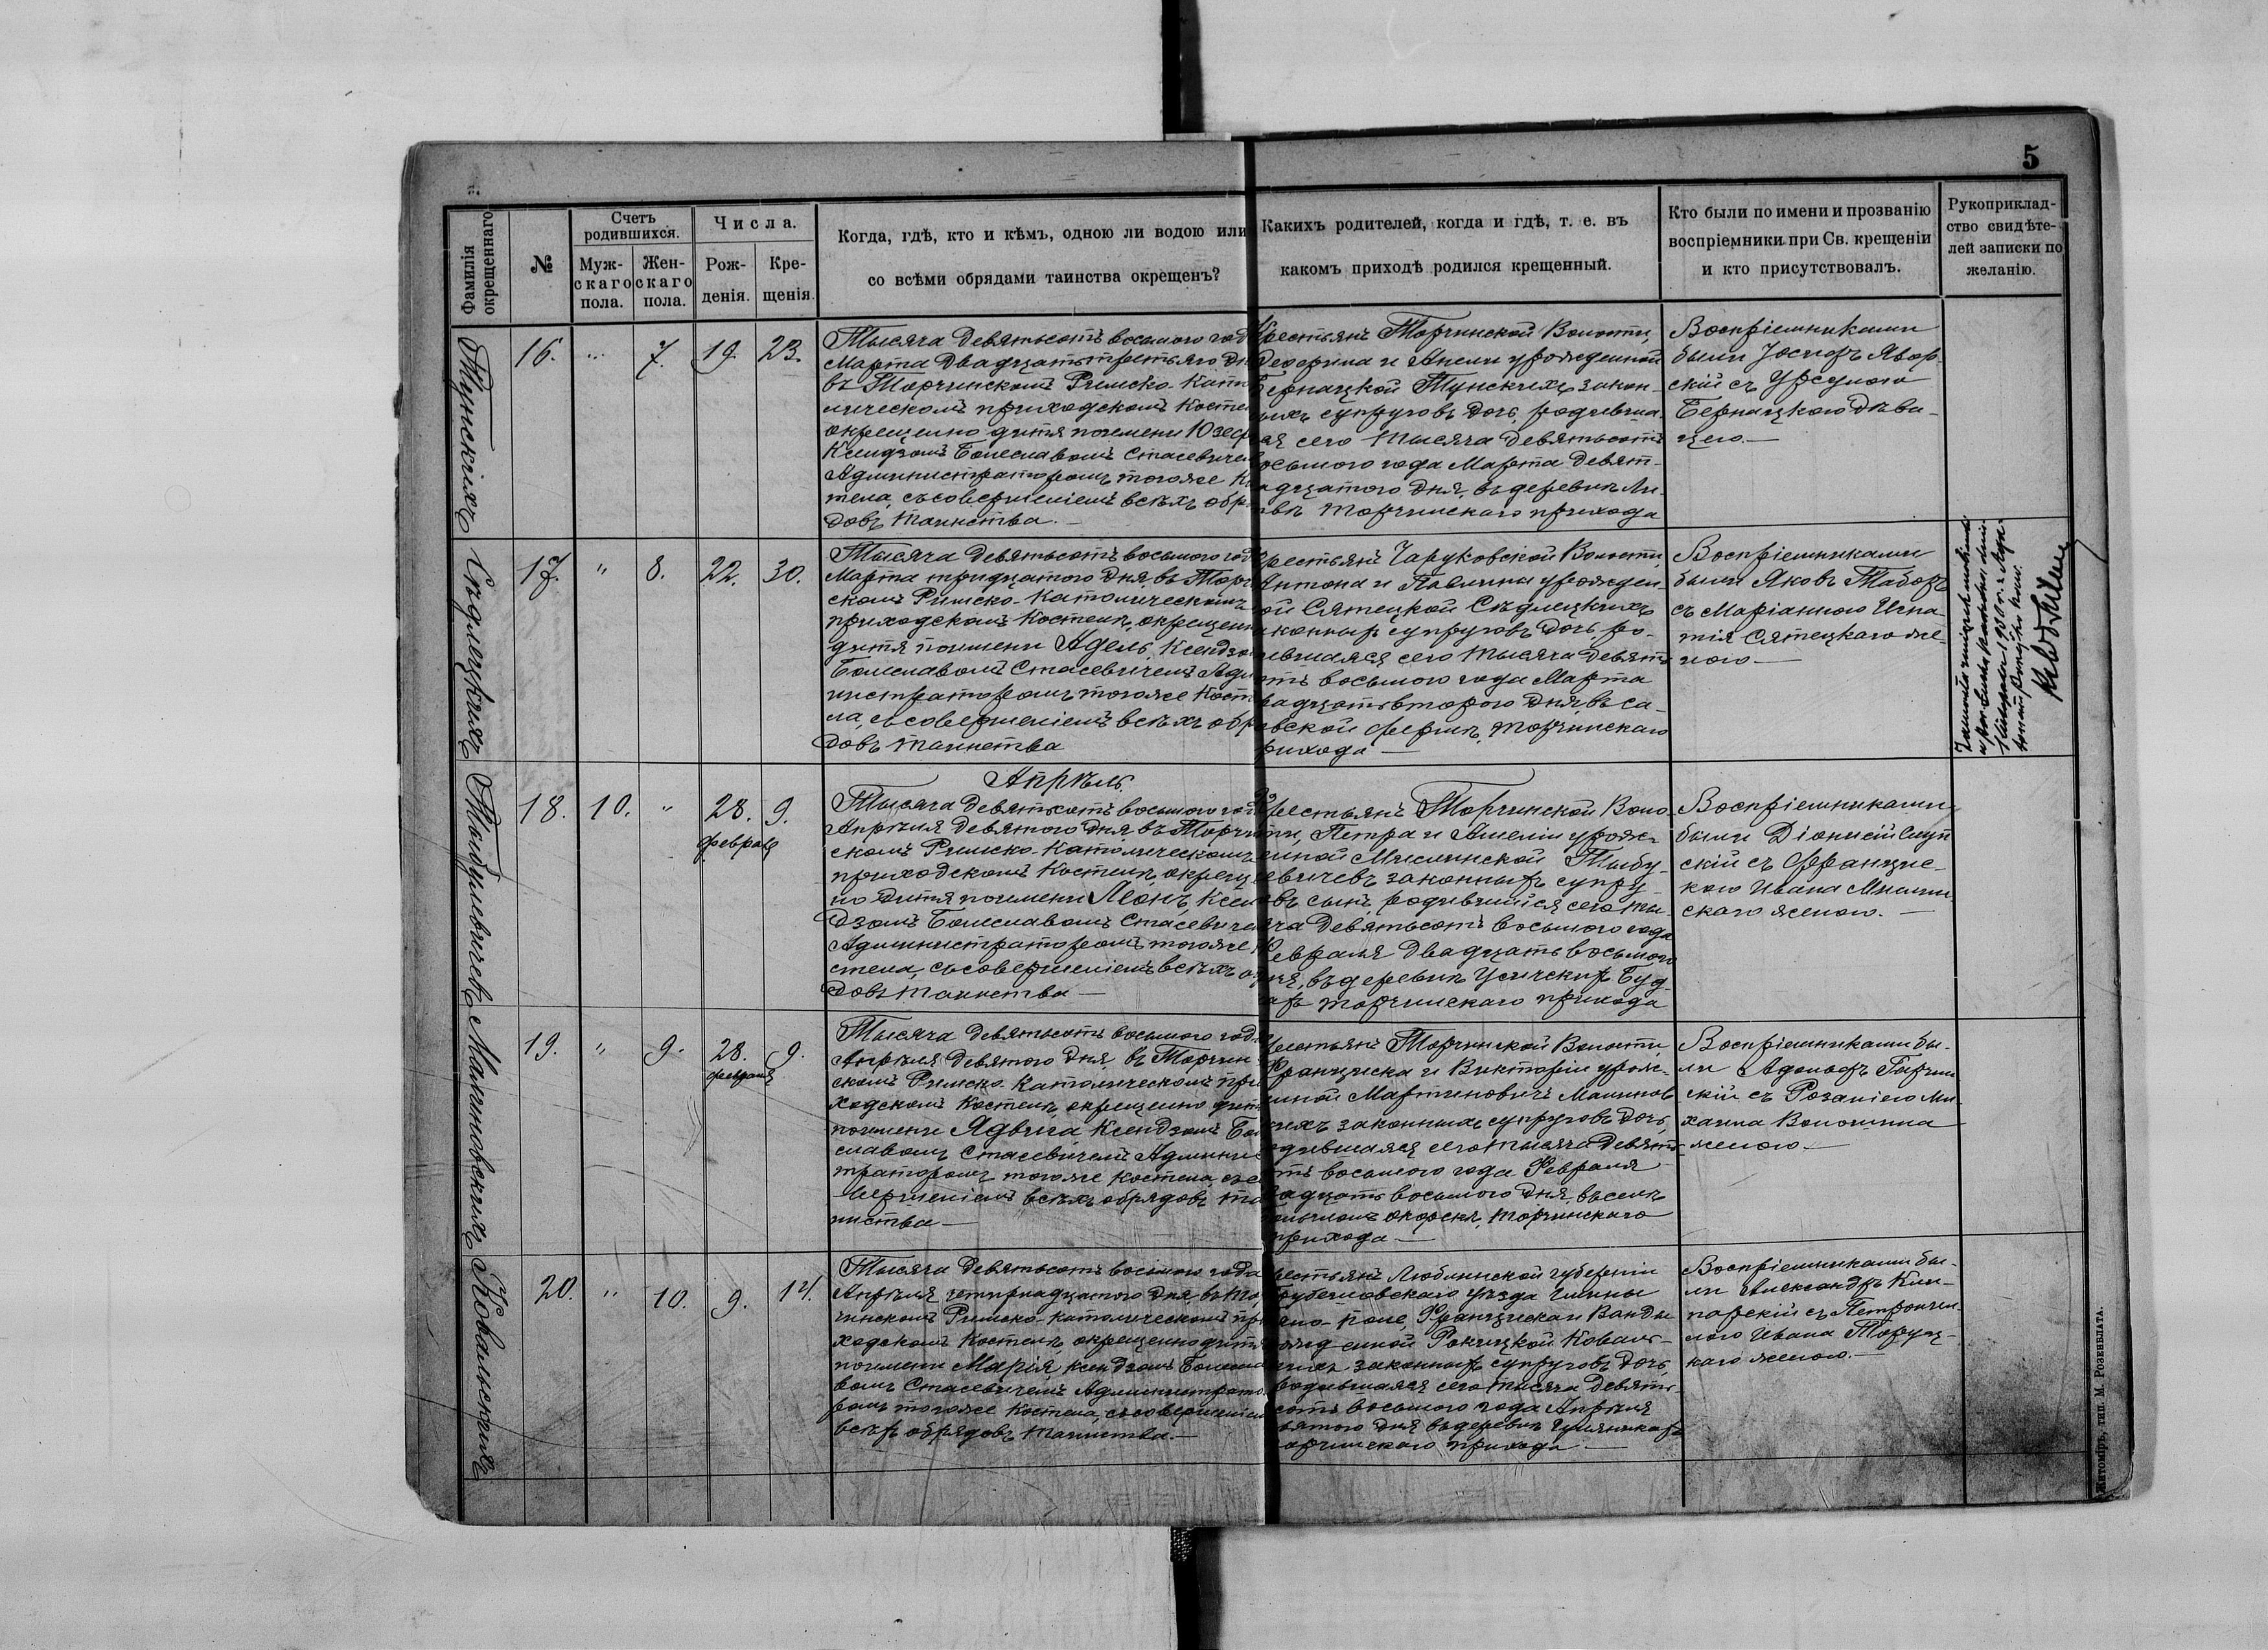 5
Фамилія окрещеннаго
№
Счетъ родившихся.
Муж-
скаго
пола.
Жен-
скаго
пола.
Числа.
Рож-
денія.
Кре-
щенія.
Когда, гдѣ, кто и кѣмъ, одною ли водою или
со всѣми обрядами таинства окрещенъ?
Какихъ родителей, когда и гдѣ, т. е. въ
какомъ приходѣ родился крещенный.
Кто были по имени и прозванію
воспріемники при Св. крещеніи
и кто присутствовалъ.
Рукоприклад-
ство свидѣте-
лей записки по
желанію.
16.
"
7.
19.
23.
Тысяча девятьсотъ восьмого год
Марта двадцать третьяго дн
въ Торчинскомъ Римско-Като
лическомъ приходскомъ косте
окрещено дитя по имени Юзеф
Ксендзомъ Болеславомъ Стасевичем
Администраторомъ тогоже К
тела, съ совершеніемъ всѣхъ обр
довъ таинства.—
Крестьянъ Торчинской Волости,
и Анели урожденной
Бернацкой закон-
ныхъ супруговъ дочь, родивша
яся сего тысяча девятьсотъ
осьмого года Марта девят-
адцатого дня, въ деревнѣ Ли-
Торчинскаго прихода
Воспріемниками
были Іосифъ Явор-
скій съ Урсулою
Бернацкою дѣви-
цею.—
Сѣдлецкихъ
17.
"
8.
22.
30.
Тысяча девятьсотъ восьмого год
Марта тридцатого дня, въ Торч
скомъ Римско-Католическомъ
приходскомъ Костелѣ, окрещен
дитя по имени Адель, Ксендзо
Болеславомъ Стасевичемъ Адм
нистраторомъ тогоже Кост
ла, съ совершеніемъ всѣхъ обр
довъ таинства
рестьянъ Чаруковской Волости,
Антона и Павлины урожден-
ой Сятецкой Сѣдлецкихъ
аконныхъ супруговъ дочь, ро-
ившаяся сего тысяча девять
отъ восьмого года Марта
вадцать второго дня, въ Са-
вской фермѣ, Торчинскаго
рихода —
Воспріемниками
были Яковъ Таборъ
съ Маріанною Игна-
тія Сятецкаго же-
ною.—
18.
10.
"
28.
февраля
9.
Апрѣль.
Тысяча девятьсотъ восьмого год
Апрѣля девятого дня въ Торчи
скомъ Римско-Католическомъ
приходскомъ Костелѣ, окрещ
но дитя по имени Леонъ, Ксен
дзомъ Болеславомъ Стасевиче
Администраторомъ тогоже
стела, съ совершеніемъ всѣхъ о
довъ таинства —
Крестьянъ Торчинской Воло-
ти, Петра и Амеліи урож-
енной Мыслинской
евичевъ законныхъ супру-
овъ сынъ, родившійся сего ты-
яча девятьсотъ восьмого года
Февраля двадцать восьмого
дня, въ деревнѣ Усичскихъ Буд-
ахъ Торчинскаго прихода
Воспріемниками
были Діонисій Слуп
скій съ Францис-
кою Ивана
скаго женою.—
Малиновскихъ
19.
"
9.
28.
февраля
9.
Тысяча девятьсотъ восьмого год
Апрѣля девятого дня, въ Торчин
скомъ Римско-Католическомъ при
ходскомъ Костелѣ, окрещено дит
по имени Ядвига, Ксендзомъ Бол
славомъ Стасевичемъ Админис
траторомъ тогоже Костела, съ со
вершеніемъ всѣхъ обрядовъ та
инства —
рестьянъ Торчинской Волости,
Франциска и Викторіи урож-
енной Мартиновичъ Малинов
скихъ законныхъ супруговъ дочь,
одившаяся сего тысяча девять
отъ восьмого года Февраля
вадцать восьмого дня, въ селѣ
Торчинскаго
прихода —
Воспріемниками бы-
ли Адольфъ
скій съ Розаліею Ми-
хаила
женою.—
Ковальскихъ
20.
"
10.
9.
14.
Тысяча девятьсотъ восьмого года
Апрѣля четырнадцатого дня, въ То
чинскомъ Римско-Католическомъ пр
ходскомъ Костелѣ, окрещено дитя
по имени Марія, Ксендзомъ Болесла
вомъ Стасевичемъ Администрато
ромъ тогоже Костела, съ совершеніем
всѣхъ обрядовъ таинства.—
рестьянъ Люблинской губерніи
Грубешовскаго уѣзда Гмины
Поле, Франциска и Ванды
рожденной Рокицкой Коваль-
скихъ законныхъ супруговъ дочь,
родившаяся сего тысяча девять-
сотъ восьмого года Апрѣля
вятого дня въ деревнѣ
орчинскаго прихода —
Воспріемниками бы-
ли Александръ
съ Петронел-
лою Ивана
каго женою.—
Житоміръ, тип. М. Розенблата.